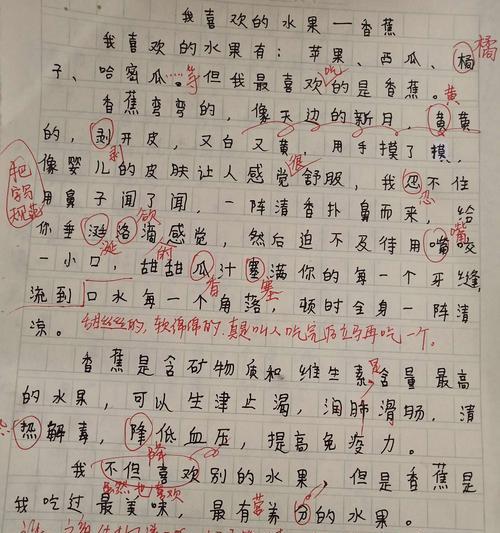 我喜欢的水果—香蕉
我喜欢的水果有：苹果、西瓜、橘 橘
子、哈密瓜……等但我最喜欢吃的是香蕉。
香蕉弯弯的，像天边的新月，黄黄 黄
的，剥开皮，又白又黄，用手摸了摸，
剥 很
像婴儿的皮肤让人感觉舒服，我忍不住
把字写规范
忍
用鼻子闻了闻，一阵清香扑鼻而来，给
欲 嘴
你垂涎洛滴感觉，然后迫不及待用嘴咬
涎 的
一小口，甜甜瓜汁塞满你的每一个牙缝，
香 塞
流到口水每一个角落，顿时全身一阵清
凉。甜丝丝的，软绵绵的，真是叫人吃完后立马再吃一个。
香蕉是含矿物质和维生素含量最高
是
的水果，可以生津止渴，润肺滑肠，清
热解毒，降低血压，提高免疫力。
降
我不但喜欢别的水果，但是香蕉是
虽然也喜欢
我吃过最美味，最有营养分的水果。